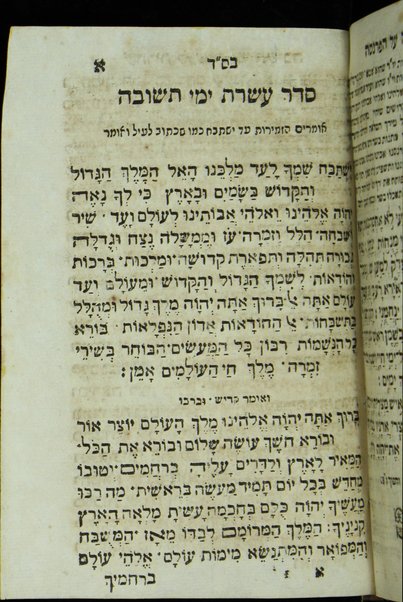 בס״ד
א
סדר עשרת ימי תשובה
אומרים הזמירות עד ישתבח כמו שכתוב לעיל ואומר
יִשְׁתַּבַּח שִׁמְךָ לָעַד מַלְכֵּנוּ הָאֵל הַמֶּלֶךְ הַגָּדוֹל
וְהַקָּדוֹשׁ בַּשָּׁמַיִם וּבָאָרֶץ׃ כִּי לְךָ נָאֶה
יְהוָה אֱלֹהֵינוּ וֵאלֹהֵי אֲבוֹתֵינוּ לְעוֹלָם וָעֶד׃ שִׁיר
וּשְׁבָחָה׃ הַלֵּל וְזִמְרָה׃ עֹז וּמֶמְשָׁלָה נֶצַח וּגְדֻלָּה׃
גְּבוּרָה תְּהִלָּה וְתִפְאֶרֶת קְדוּשָׁה׃ וּמַלְכוּת׃ בְּרָכוֹת
וְהוֹדָאוֹת׃ לְשִׁמְךָ הַגָּדוֹל וְהַקָּדוֹשׁ׃ וּמֵעוֹלָם וְעַד
עוֹלָם אַתָּה אֵל׃ בָּרוּךְ אַתָּה יְהוָה מֶלֶךְ גָּדוֹל וּמְהֻלָּל
בַּתִּשְׁבָּחוֹת׃ אֵל הַהוֹדָאוֹת אֲדוֹן הַנִּפְלָאוֹת׃ בּוֹרֵא
כָּל הַנְּשָׁמוֹת רִבּוֹן כָּל הַמַּעֲשִׂים׃ הַבּוֹחֵר בְּשִׁירֵי
זִמְרָה׃ מֶלֶךְ חֵי הָעוֹלָמִים אָמֵן׃
ואומר קדיש׃ וברכו
בָּרוּךְ אַתָּה יְהוָה אֱלֹהֵינוּ מֶלֶךְ הָעוֹלָם יוֹצֵר אוֹר
וּבוֹרֵא חֹשֶׁךְ עוֹשֶׂה שָׁלוֹם וּבוֹרֵא אֶת הַכֹּל׃
הַמֵּאִיר לָאָרֶץ וְלַדָּרִים עָלֶיהָ בְּרַחֲמִים׃ וּבְטוּבוֹ
מְחַדֵּשׁ בְּכָל יוֹם תָּמִיד מַעֲשֵׂה בְרֵאשִׁית׃ מָה רַבּוּ
מַעֲשֶׂיךָ יְהוָה כֻּלָּם בְּחָכְמָה עָשִׂיתָ מָלְאָה הָאָרֶץ
קִנְיָנֶיךָ׃ הַמֶּלֶךְ הַמְרוֹמָם לְבַדּוֹ מֵאָז׃ הַמְשֻׁבָּח
וְהַמְפוֹאָר וְהַמִּתְנַשֵּׂא מִימוֹת עוֹלָם׃ אֱלֹהֵי עוֹלָם
א
ברחמיך